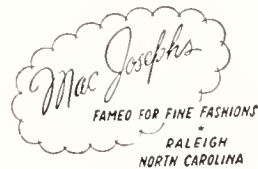 Mac Josephs
FAMED FOR FINE FASHIONS
*
RALEIGH
NORTH CAROLINA